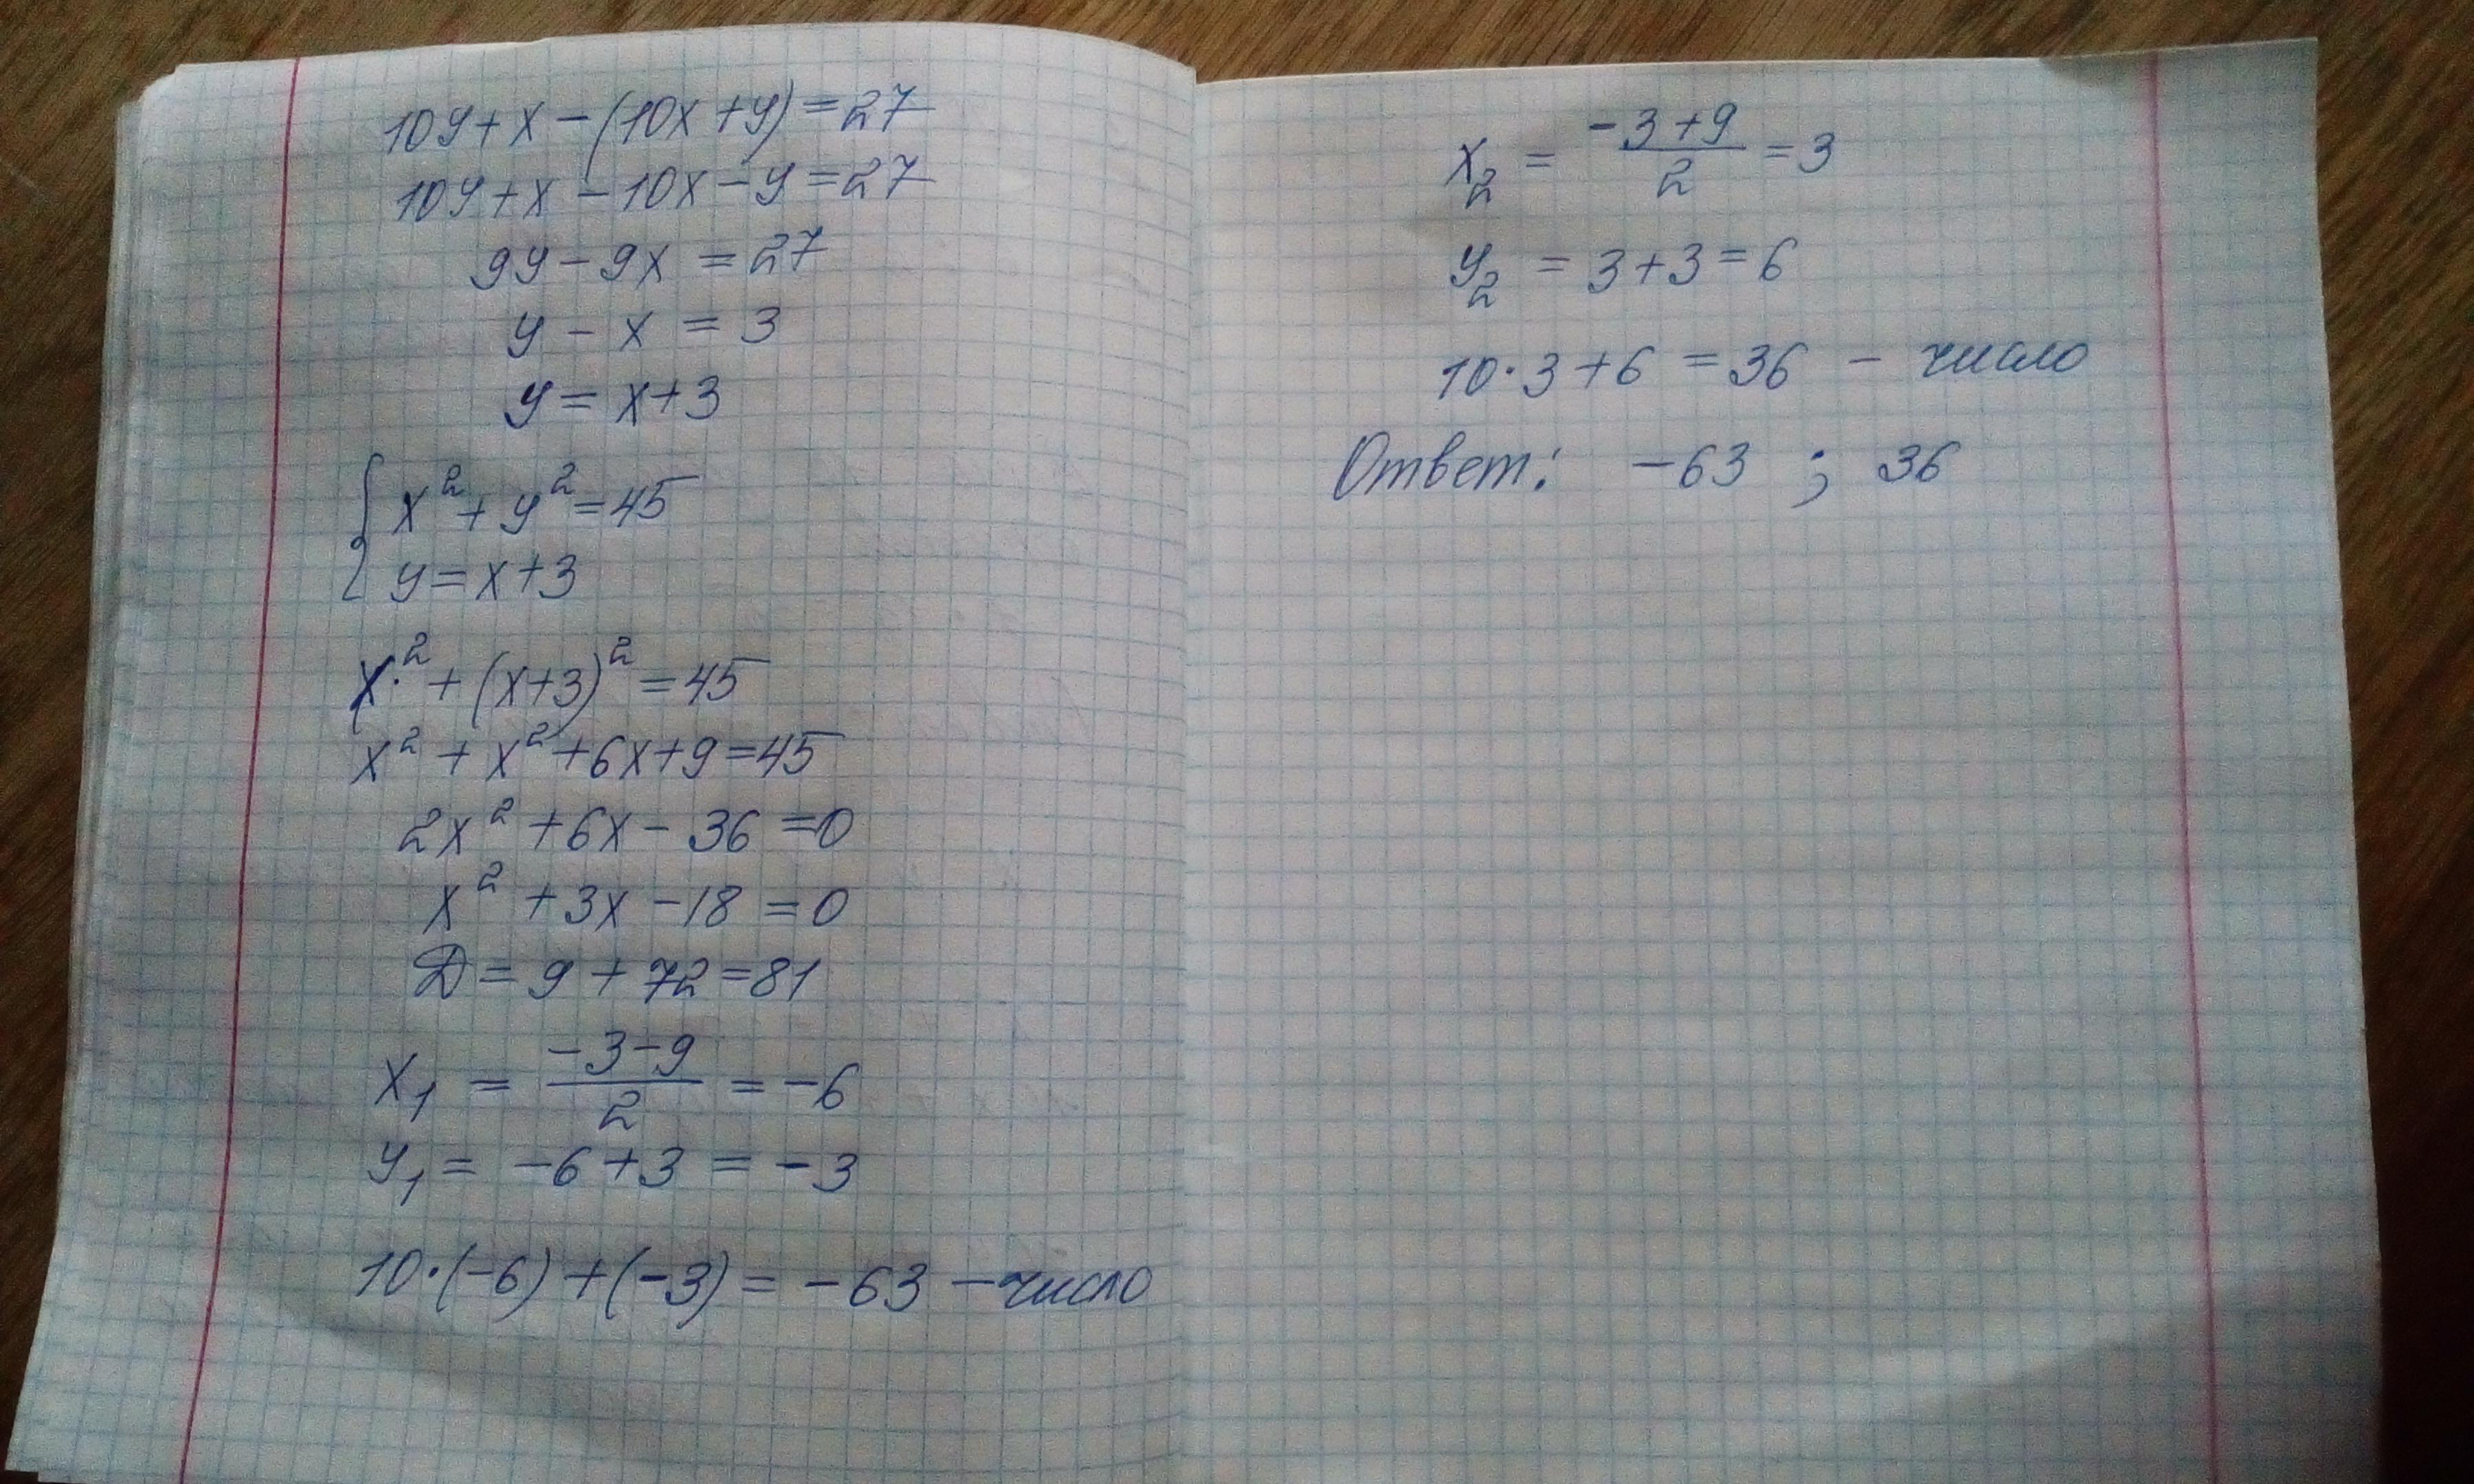 10y+x-(10x+y)=27
10y+x-10x-y=27
9y-9x=27
y-x=3
y=x+3
x²+y²=45
y=x+3
x²+(x+3)²=45
x²+x²+6x+9=45
2x²+6x-36=0
x²+3x-18=0
Д=9+72=81
x₁=(-3-9)/2=-6
y₁=-6+3=-3
10·(-6)+(-3)=-63-число
x₂=(-3+9)/2=3
y₂=3+3=6
10·3+6=36-число
Ответ: -63; 36